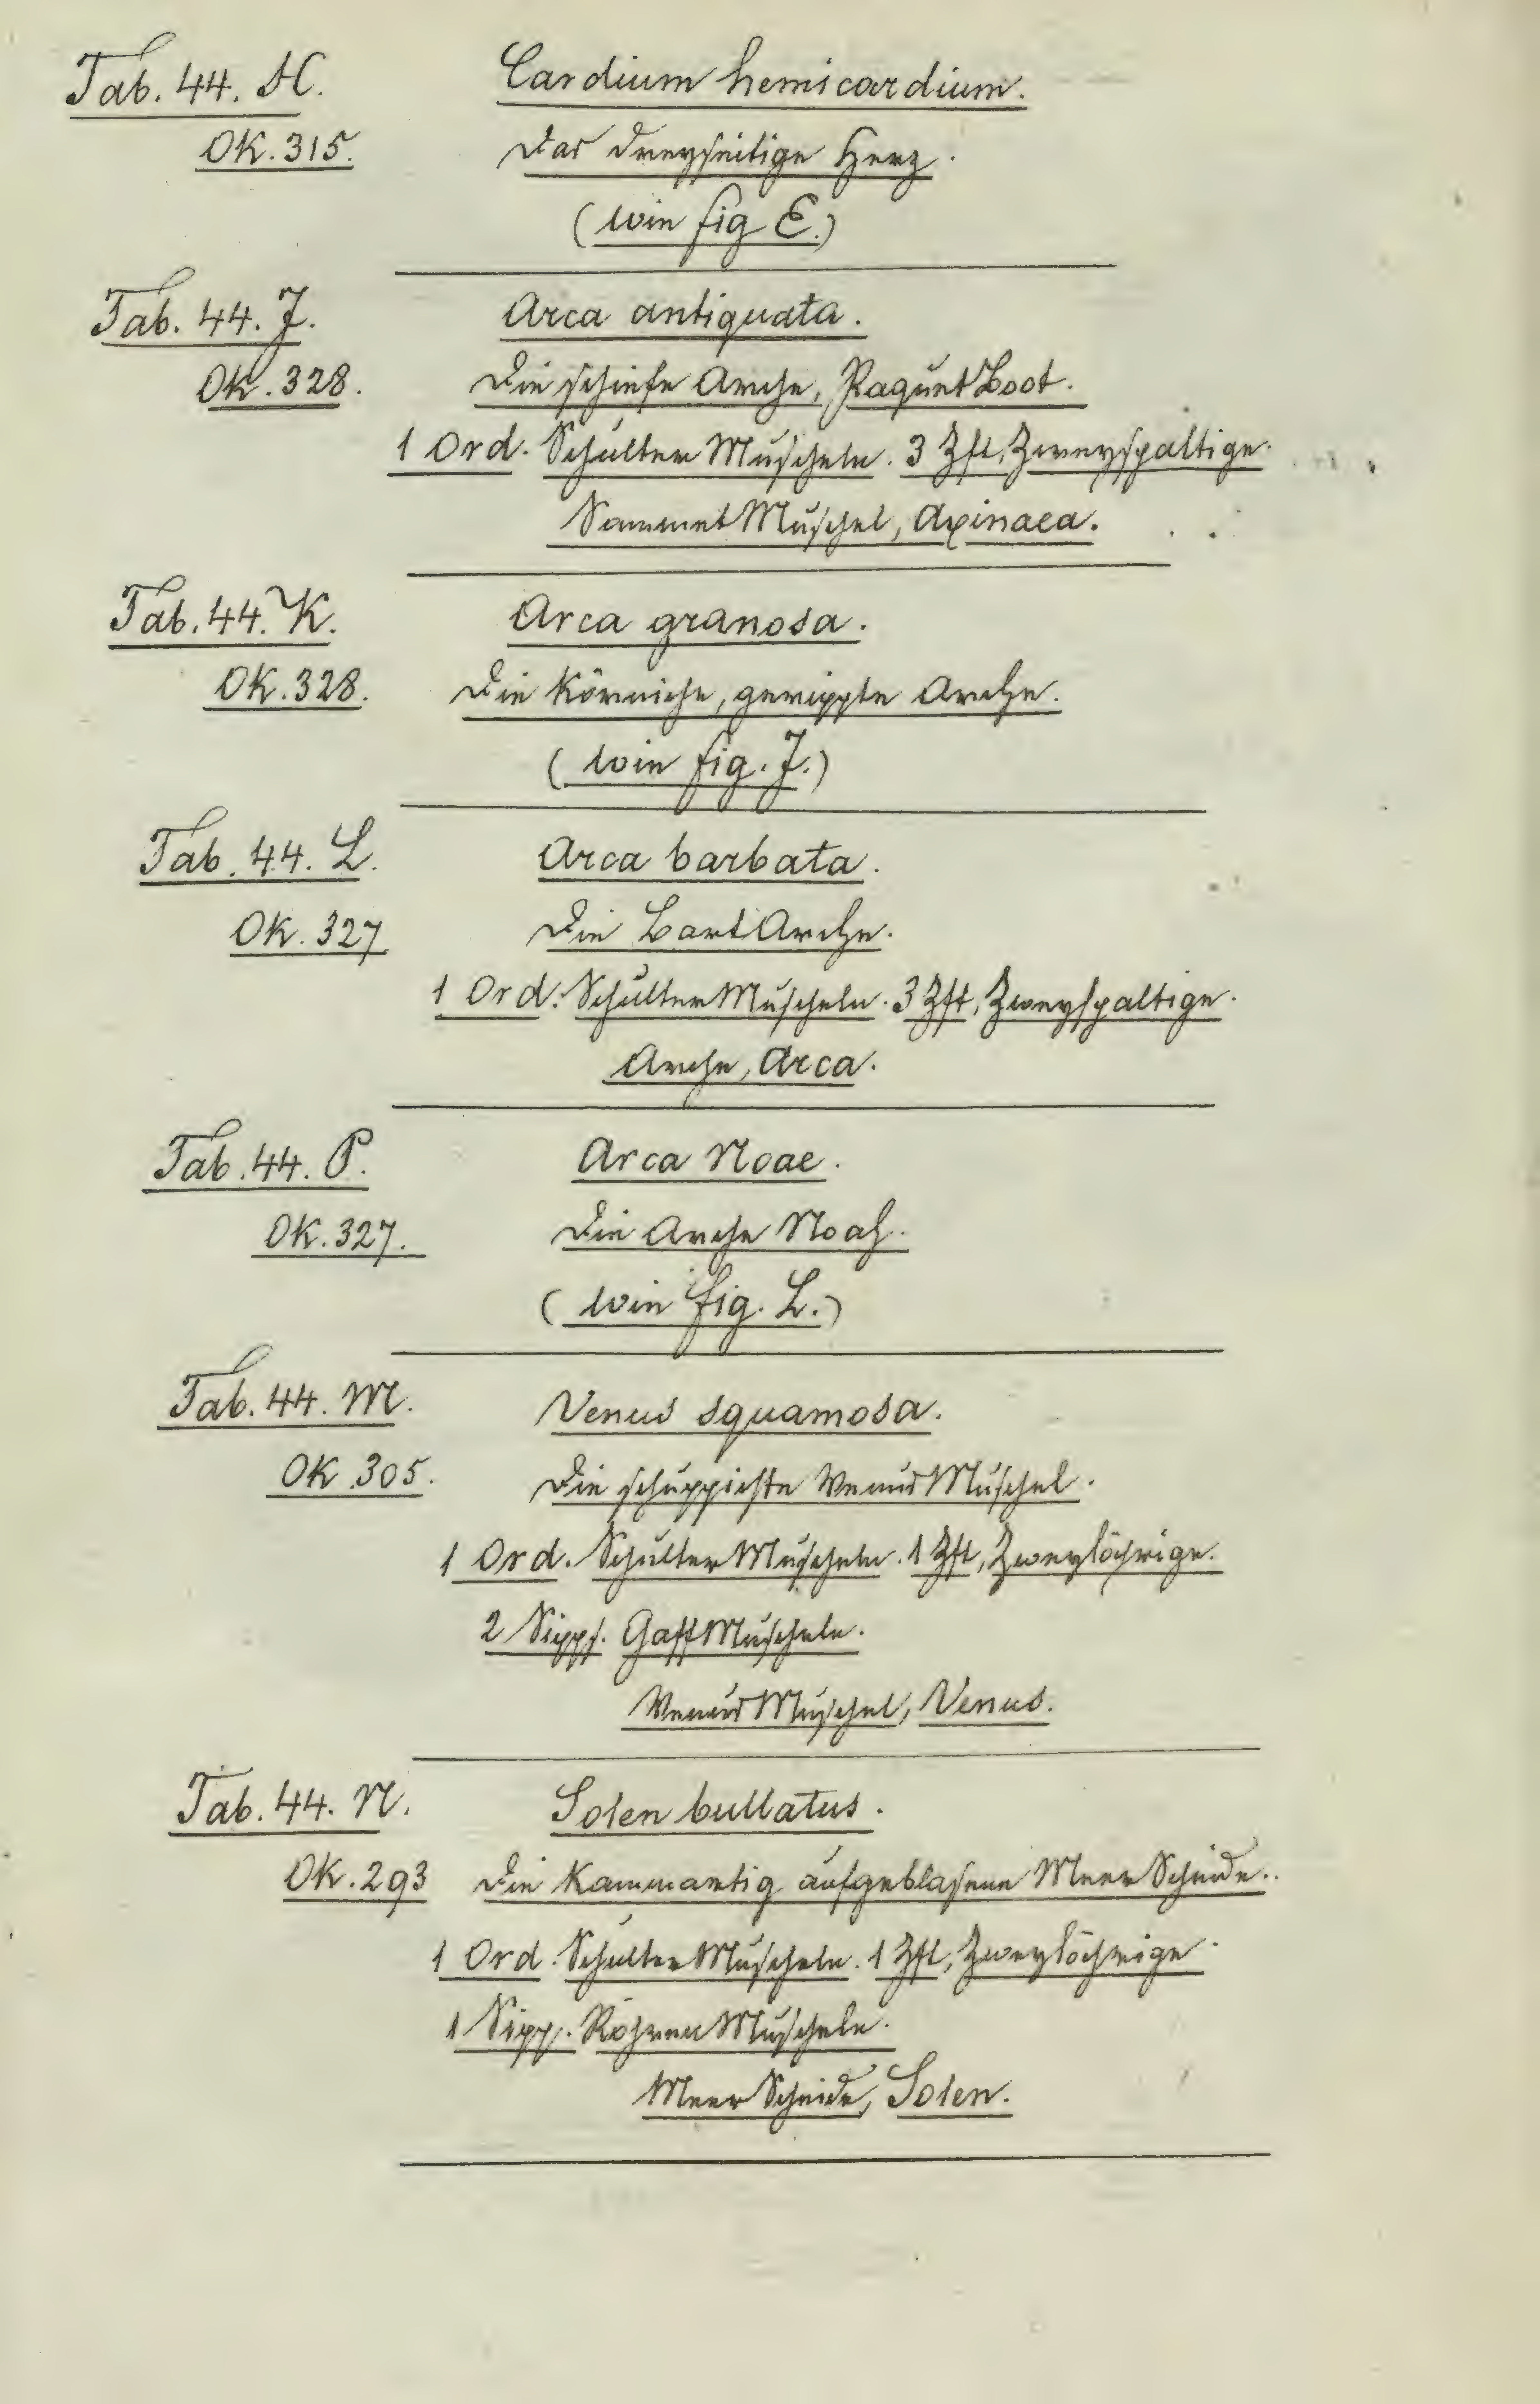 Tab. 44. H. Cardium hemicardium.
OK. 315. Das dreyseitige Herz.
(wie fig E.)
Tab. 44. J. Arca antiquata.
OK. 328. Die schiefe Arche, RaquetBoot.
1 Ord. SchulterMuscheln. 3 Zft, Zweyspaltige.
SammetMuschel, Axinaea.
Tab. 44. K. Arca granosa.
OK. 328. Die körniche, gerippte Arche.
(wie fig. J.)
Tab. 44. L. Arca barbata.
OK. 327 Die BartArche.
1 Ord. SchulterMuscheln. 3 Zft, Zweyspaltige.
Arche, Arca.
Tab. 44. P. Arca Noae.
OK. 327. Die Arche Noah.
(wie fig. L.)
Tab. 44. M. Venus squamosa.
OK. 305. Die schuppichte VenusMuschel.
1 Ord. SchulterMuscheln. 1 Zft, Zweylöchrige.
2 Sipps. GaffMuscheln.
VenusMuschel, Venus.
Tab. 44. N. Solen bullatus.
OK. 293 Die Kammartig aufgeblasene MeerScheide.
1 Ord. SchulterMuscheln. 1 Zft, Zweylöchrige.
1 Sipp. RöhrenMuscheln.
MeerScheide, Solen.